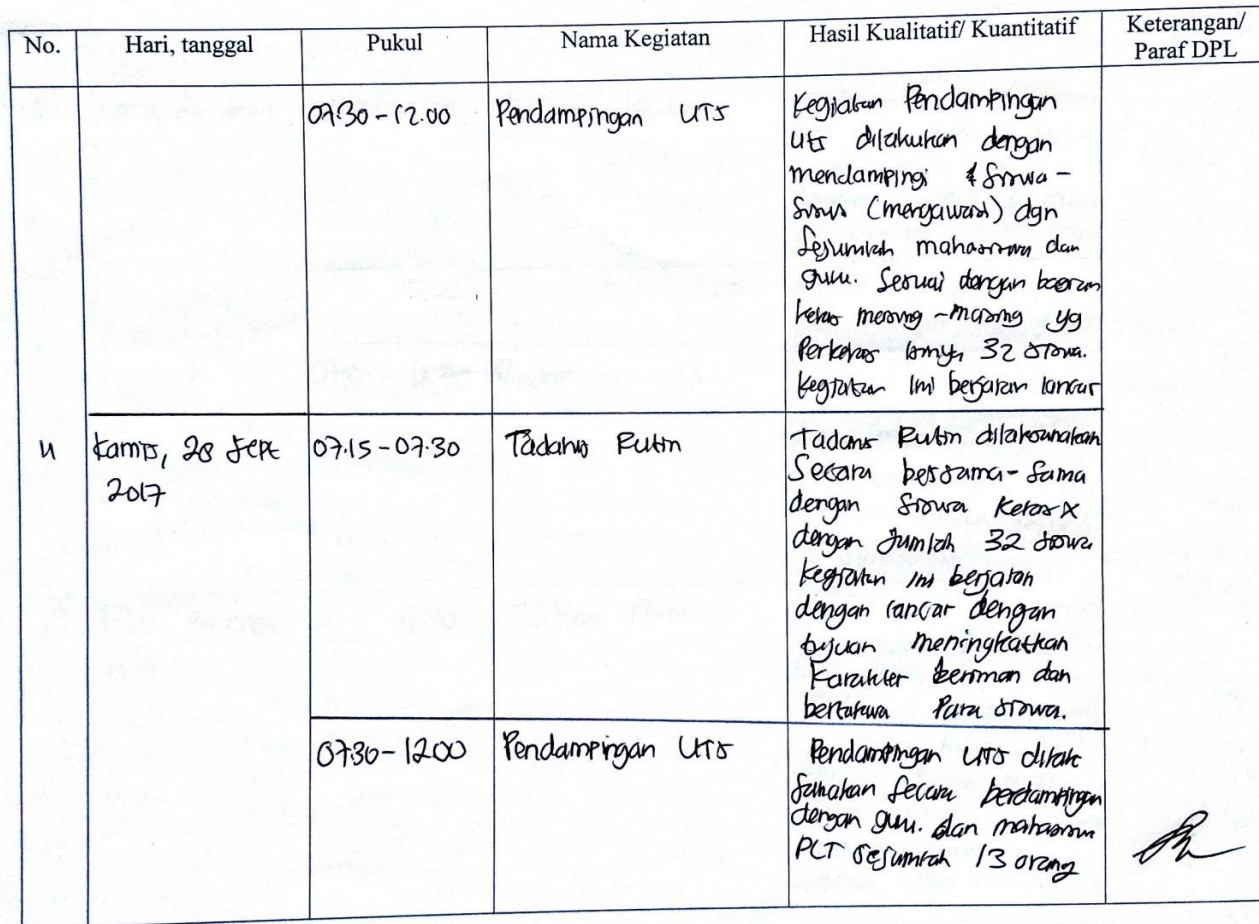 No.
Hari, tanggal
Pukul
Nama Kegiatan
Hasil Kualitatif/ Kuantitatif
Keterangan/
Paraf DPL
07.30-12.00
Pendampingan UTS
Kegiatan Pendampingan
UTS dilakukan dengan
mendampingi Siswa-
Siswa (mengawasi) dgn
Sejumlah mahasiswa dan
guru. Sesuai dengan
kelas masing-masing yg
Perkelas 32 siswa.
Kegiatan ini berjalan lancar
4
Kamis, 28 Sept
2017
07.15-07.30
Tadarus Rutin
Tadarus Rutin dilaksanakan
Secara bersama-Sama
dengan Siswa Kelas X
dengan Jumlah 32 siswa
Kegiatan ini berjalan
dengan lancar dengan
tujuan meningkatkan
Karakter beriman dan
bertakwa Para siswa.
07.30-12.00
Pendampingan UTS
Pendampingan UTS dilak
sanakan Secara berdampingan
dengan guru. dan mahasiswa
PLT sejumlah 13 orang